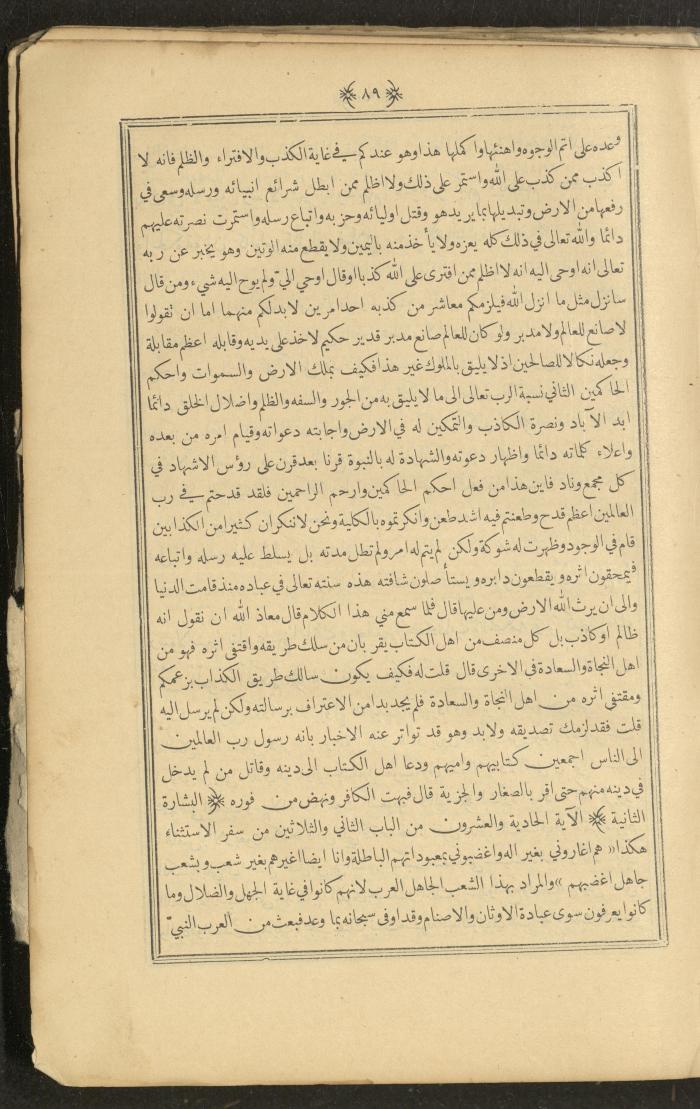 ﴿ ٨٩ ﴾
وعده على اتم الوجوه واهنئها واكملها هذا وهو عندكم في غاية الكذب والافتراء والظلم فانه لا
اكذب ممن كذب على الله واستمر على ذلك ولا اظلم ممن ابطل شرائع انبيائه ورسله وسعى في
رفعها من الارض وتبديلها بما يريد هو وقتل اوليائه وحزبه واتباع رسله واستمرت نصرته عليهم
دائما والله تعالى في ذلك كله يعزه ولا يأخذ منه باليمين ولا يقطع منه الوتين وهو يخبر عن ربه
تعالى انه اوحى اليه انه لا اظلم ممن افترى على الله كذبا او قال اوحي اليّ ولم يوح اليه شيء ومن قال
سانزل مثل ما انزل الله فيلزمكم معاشر من كذبه احد امرين لابد لكم منهما اما ان تقولوا
لا صانع للعالم ولا مدبر ولو كان للعالم صانع مدبر قدير حكيم لاخذ على يديه وقابله اعظم مقابلة
وجعله نكالا للصالحين اذ لا يليق بالملوك غير هذا فكيف بملك الارض والسموات واحكم
الحاكمين الثاني نسبة الرب تعالى الى ما لا يليق به من الجور والسفه والظلم واضلال الخلق دائما
ابد الآباد ونصرة الكاذب والتمكين له في الارض واجابته دعواته وقيام امره من بعده
واعلاء كلماته دائما واظهار دعوته والشهادة له بالنبوة قرنا بعد قرن على رؤس الاشهاد في
كل مجمع وناد فاين هذا من فعل احكم الحاكمين وارحم الراحمين فلقد قدحتم في رب
العالمين اعظم قدح وطعنتم فيه اشد طعن وانكرتموه بالكلية ونحن لا ننكر ان كثيرا من الكذابين
قام في الوجود وظهرت له شوكة ولكن لم يتم له امر ولم تطل مدته بل يسلط عليه رسله واتباعه
فيمحقون اثره ويقطعون دابره ويستأصلون شافته هذه سنته تعالى في عباده منذ قامت الدنيا
والى ان يرث الله الارض ومن عليها قال فلما سمع مني هذا الكلام قال معاذ الله ان نقول انه
ظالم او كاذب بل كل منصف من اهل الكتاب يقر بان من سلك طريقه واقتفى اثره فهو من
اهل النجاة والسعادة في الاخرى قال قلت له فكيف يكون سالك طريق الكذاب بزعمكم
ومقتفى اثره من اهل النجاة والسعادة فلم يجد بدا من الاعتراف برسالته ولكن لم يرسل اليه
قلت فقد لزمك تصديقه ولا بد وهو قد تواتر عنه الاخبار بانه رسول رب العالمين
الى الناس اجمعين كتابيهم واميهم ودعا اهل الكتاب الى دينه وقاتل من لم يدخل
في دينه منهم حتى اقر بالصغار والجزية قال فبهت الكافر ونهض من فوره ﴿ البشارة
الثانية ﴾ الآية الحادية والعشرون من الباب الثاني والثلاثين من سفر الاستثناء
هكذا « هم اغاروني بغير اله واغضبوني بمعبوداتهم الباطلة وانا ايضا اغيرهم بغير شعب وبشعب
جاهل اغضبهم » والمراد بهذا الشعب الجاهل العرب لانهم كانوا في غاية الجهل والضلال وما
كانوا يعرفون سوى عبادة الاوثان والاصنام وقد اوفى سبحانه بما وعد فبعث من العرب النبيّ